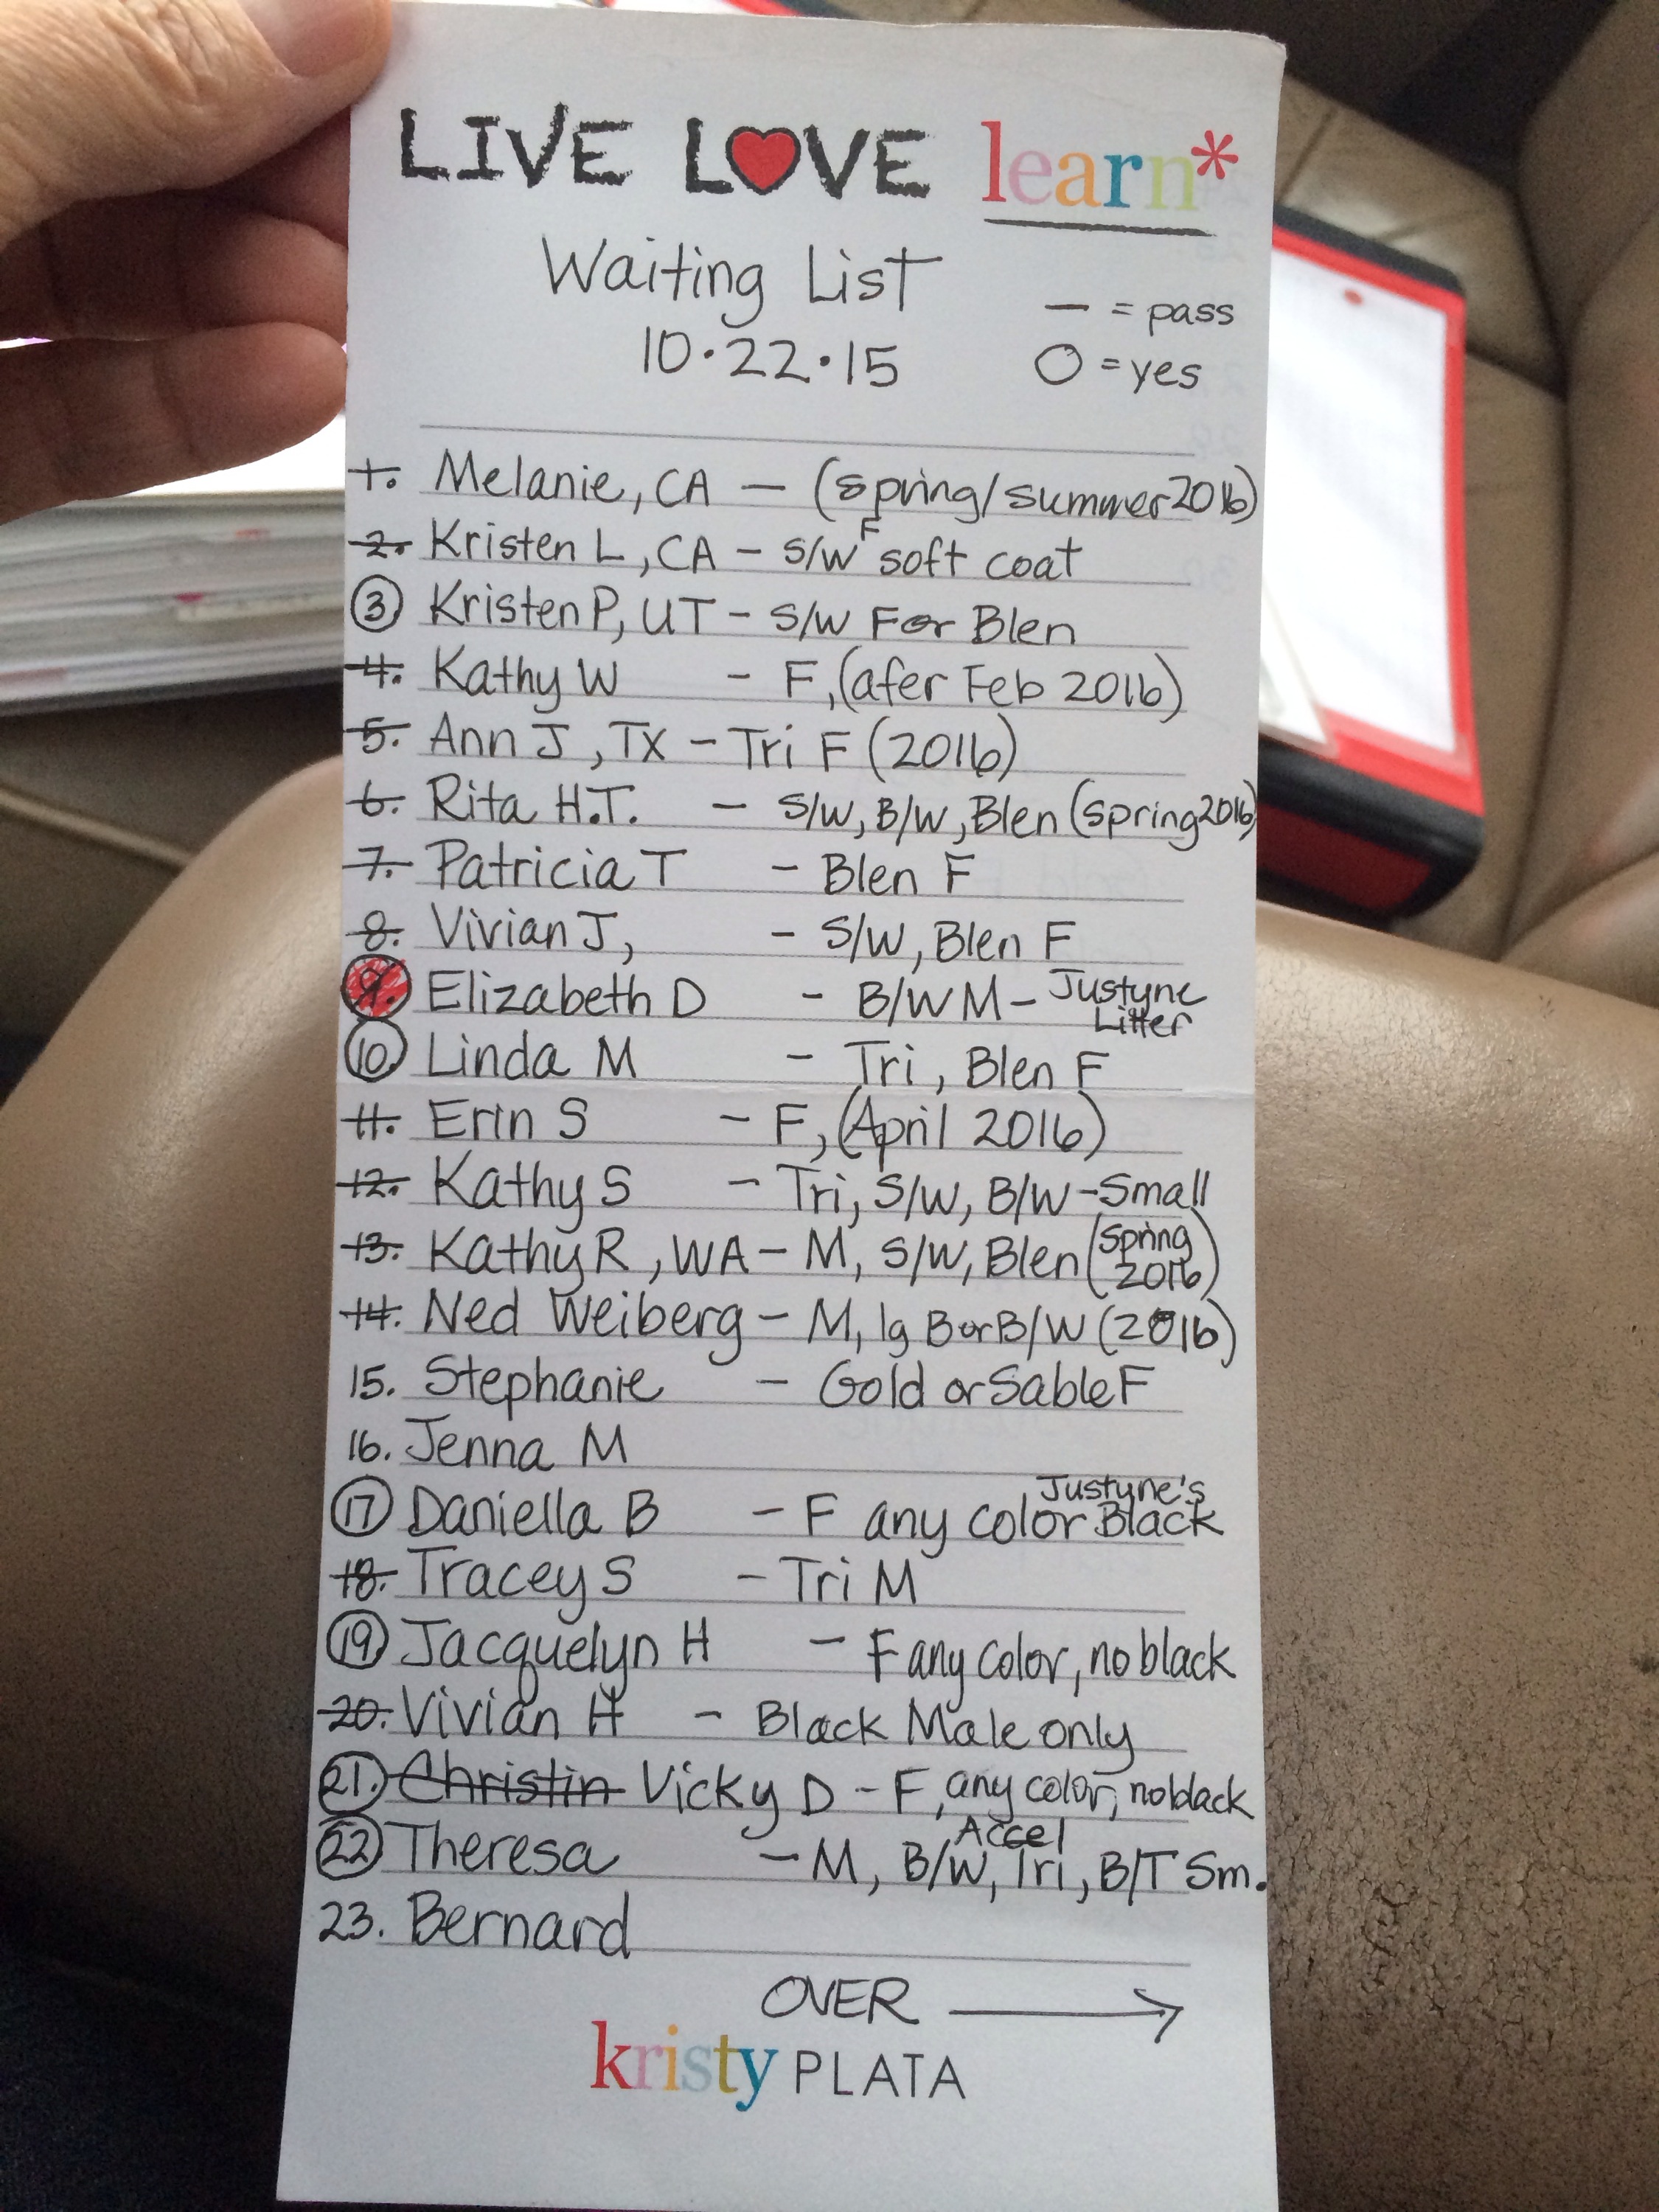 LIVE LOVE learn*
Waiting List
— = pass
10·22·15
O = yes
1. Melanie, CA — (spring/summer 2016)
2. Kristen L, CA – S/W F soft coat
3 Kristen P, UT – S/W F or Blen
4. Kathy W – F, (afer Feb 2016)
5. Ann J, TX – Tri F (2016)
6. Rita H.T. – S/W, B/W, Blen (spring 2016)
7. Patricia T – Blen F
8. Vivian J, – S/W, Blen F
9. Elizabeth D – B/W M – Justyne Litter
10 Linda M – Tri, Blen F
11. Erin S – F, (April 2016)
12. Kathy S – Tri, S/W, B/W – Small
13. Kathy R, WA – M, S/W, Blen (Spring 2016)
14. Ned Weiberg – M, lg B or B/W (2016)
15. Stephanie – Gold or Sable F
16. Jenna M
17 Daniella B – F any color Justyne's Black
18. Tracey S – Tri M
19 Jacquelyn H – F any color, no black
20. Vivian H – Black Male only
21. Christin Vicky D – F, any color, no black
22 Theresa – M, B/W, Accel Tri, B/T Sm.
23. Bernard
OVER →
kristy PLATA